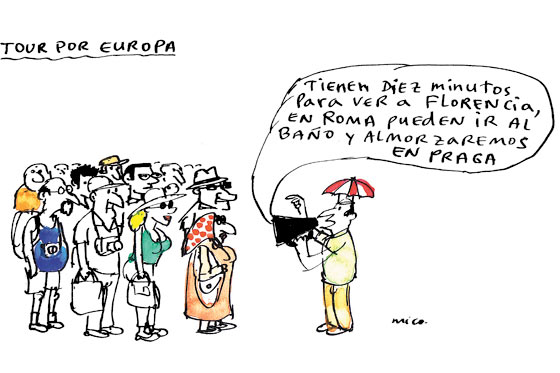 TOUR POR EUROPA
TIENEN DIEZ minutos
PARA VER A FLORENCIA,
EN ROMA PUEDEN IR AL
BAÑO Y ALMORZAREMOS
EN PRAGA
mico.